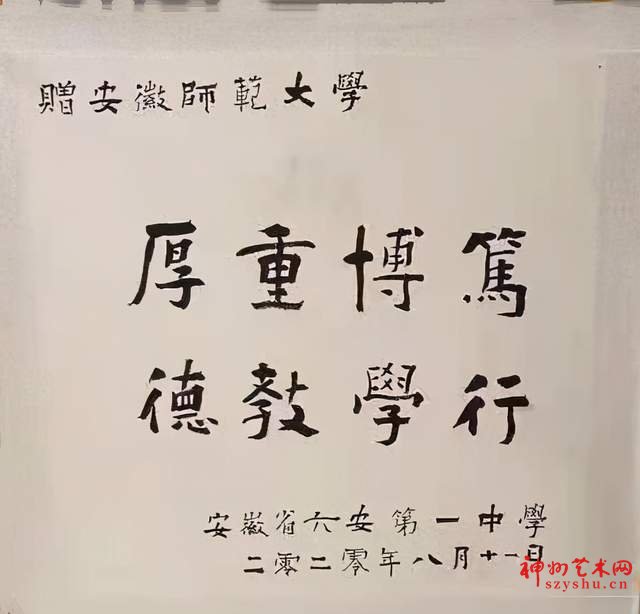 贈安徽師範大學
厚重博篤
德教學行
安徽省六安第一中學
二零二零年八月十一日
神州艺术网
szyshu.cn